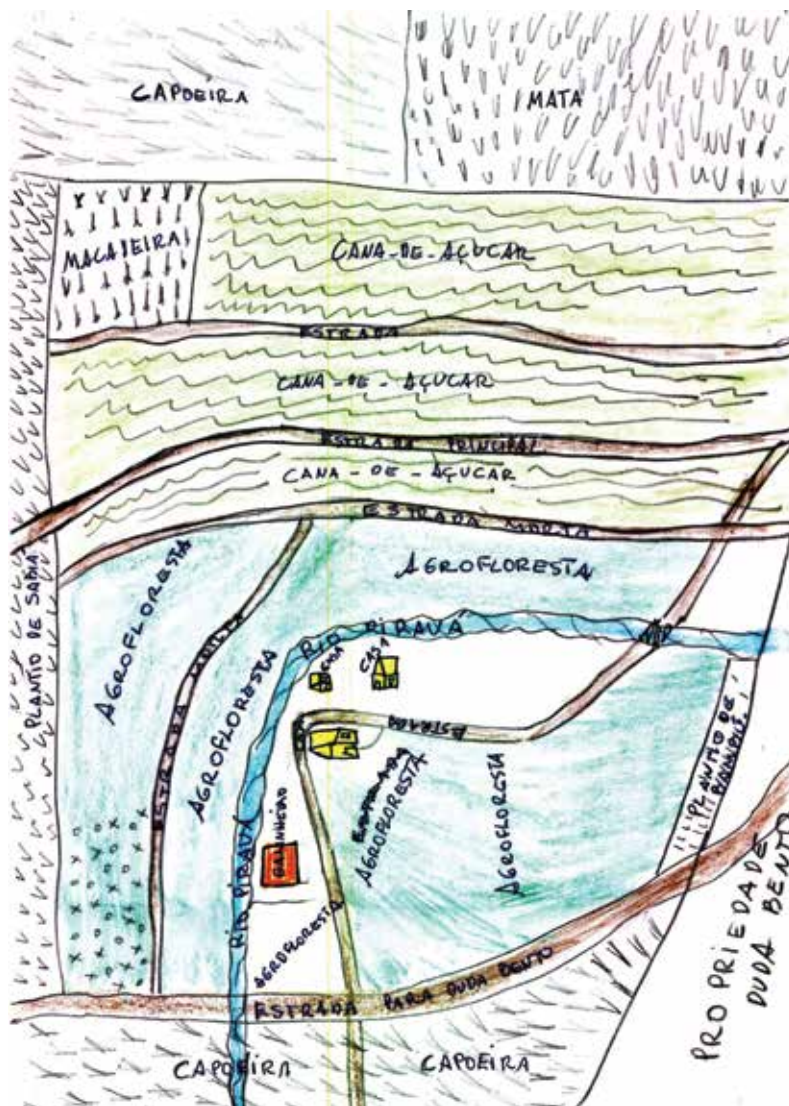 CAPOEIRA
MATA
MACAXEIRA
CANA-DE-AÇUCAR
ESTRADA
CANA-DE-AÇUCAR
ESTRADA PRINCIPAL
CANA-DE-AÇUCAR
ESTRADA MORTA
PLANTIO DE SABIÁ
AGROFLORESTA
AGROFLORESTA
RIO PIRAUÁ
CASA
CASA
ESTRADA
AGROFLORESTA
ESTRADA
AGROFLORESTA
AGROFLORESTA
PLANTIO DE
GALINHEIRO
RIO PIRAUÁ
AGROFLORESTA
ESTRADA PARA DUDA BENTO
PROPRIEDADE
DUDA BENTO
CAPOEIRA
CAPOEIRA